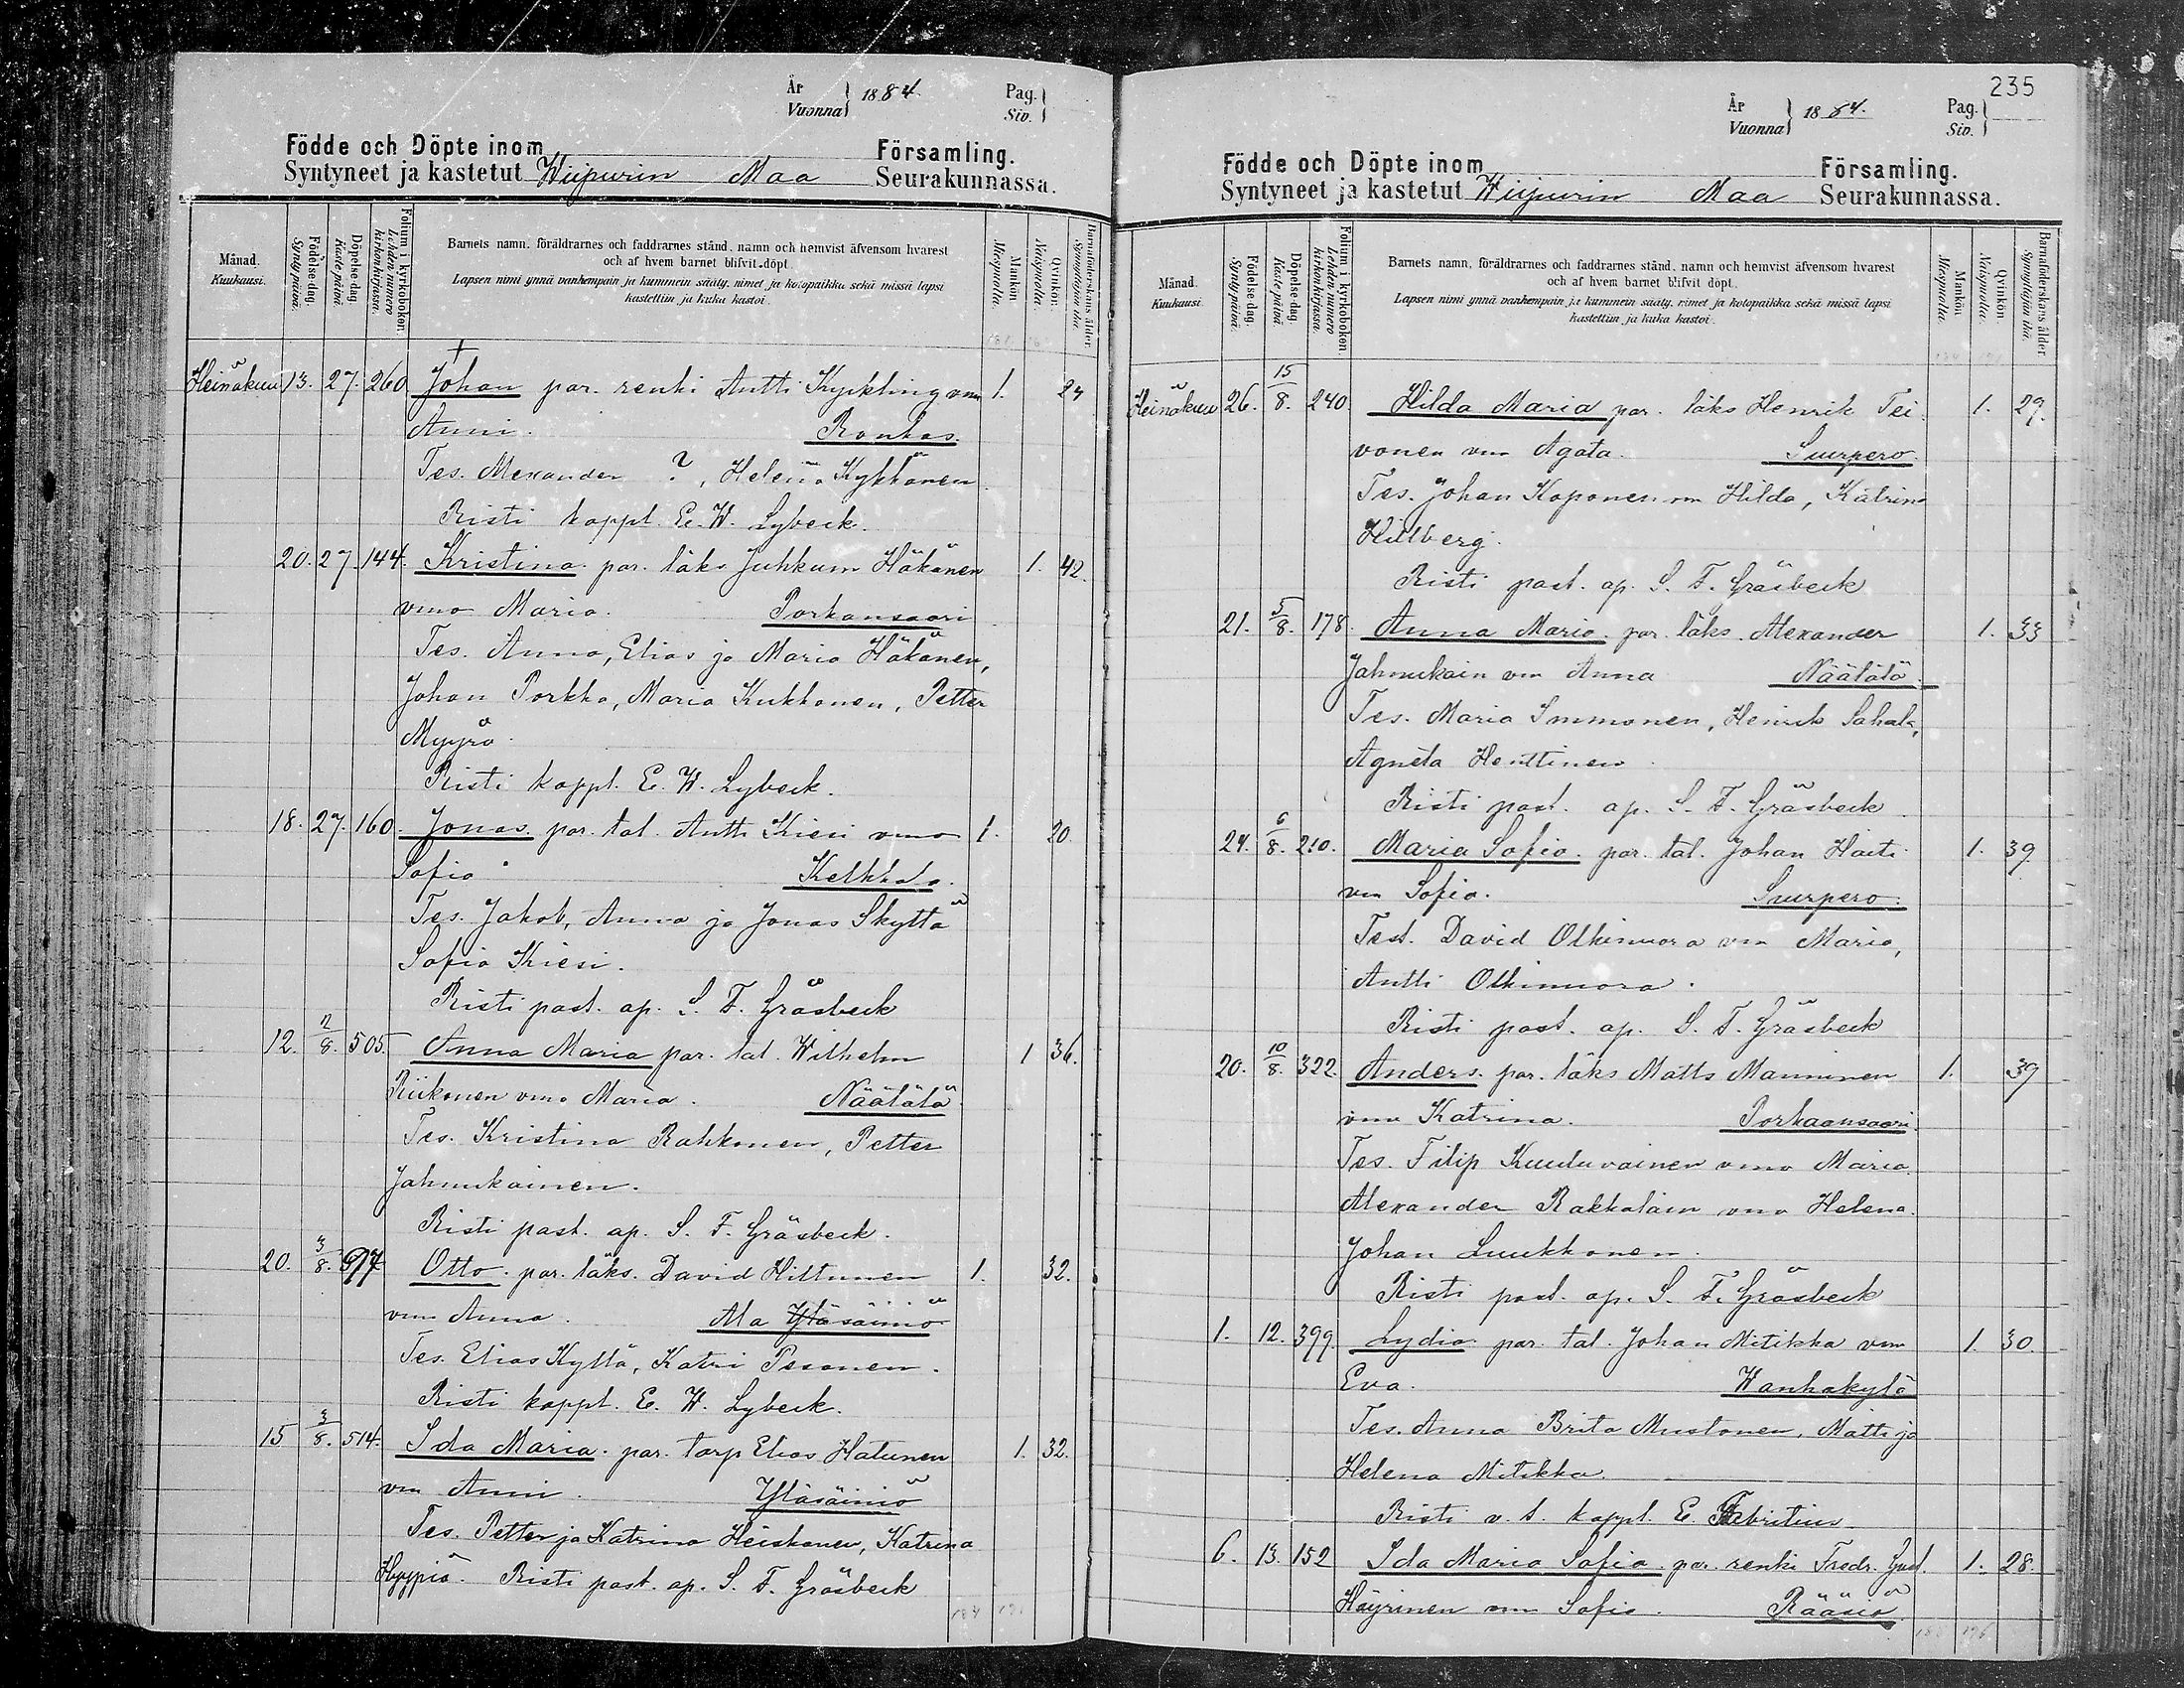 År
Vuonna 1884.
Pag.
Siv.
Födde och Döpte inom Församling.
Syntyneet ja kastetut Wiipurin Maa Seurakunnassa.
Månad. Kuukausi.
Födelse dag. Synty päivä.
Döpelse dag. Kaste päivä.
Folium i kyrkoboken. Lehden numero kirkonkirjassa.
Barnets namn, föräldrarnes och faddrarnes stånd, namn och hemvist äfvensom hvarest
och af hvem barnet blifvit döpt.
Lapsen nimi ynnä vanhempain ja kummein sääty, nimet ja kotopaikka sekä missä lapsi
kastettiin ja kuka kastoi.
Mankön. Miespuolia.
Qvinkön. Naispuolia.
Barnaföderskans ålder. Synnyttäjän ikä.
Heinäkuu 13. 27. 260 Johan par. renki Antti Kyckling vmo 1. 24
Anni. Ronkas.
Tes. Alexander ?, Helena Kykkänen
Risti kappl. E. W. Lybeck.
20. 27. 144. Kristina par. läks Juhkum Häkänen 1. 42.
vmo Maria. Porkansaari
Tes. Anna, Elias ja Maria Häkänen,
Johan Porkka, Maria Kukkonen, Petter
Myyrä.
Risti kappl. E. W. Lybeck.
18. 27. 160. Jonas par. tal. Antti Kiesi vmo 1. 20.
Sofia Kelkkala.
Tes. Jakob, Anna ja Jonas Skyttä
Sofia Kiesi.
Risti past. ap. S. F. Gräsbeck
12. 2/8. 505. Anna Maria par. tal. Wilhelm 1 36.
Riikonen vmo Maria. Näätälä.
Tes. Kristina Rahkonen, Petter
Jahnukainen.
Risti past. ap. S. F. Gräsbeck.
20. 3/8. Otto par. läks. David Hiltunen 1. 32.
vmo Anna. Ala Yläsäiniö
Tes. Elias Kyttä, Katri Pesonen.
Risti kappl. E. W. Lybeck.
15 3/8. 514. Ida Maria par. torp Elias Hatunen 1. 32.
vm Anni. Yläsäiniö
Tes. Petter ja Katrina Heiskanen, Katrina
Hyypiä. Risti past. ap. S. F. Gräsbeck
235
År
Vuonna 1884.
Pag.
Siv.
Födde och Döpte inom Församling.
Syntyneet ja kastetut Wiipurin Maa Seurakunnassa.
Månad. Kuukausi.
Födelse dag. Synty päivä.
Döpelse dag. Kaste päivä.
Folium i kyrkoboken. Lehden numero kirkonkirjassa.
Barnets namn, föräldrarnes och faddrarnes stånd, namn och hemvist äfvensom hvarest
och af hvem barnet blifvit döpt.
Lapsen nimi ynnä vanhempain ja kummein sääty, nimet ja kotopaikka sekä missä lapsi
kastettiin ja kuka kastoi.
Mankön. Miespuolia.
Qvinkön. Naispuolia.
Barnaföderskans ålder. Synnyttäjän ikä.
Heinäkuu 26. 15/8. 240. Hilda Maria par. läks Henrik Tei- 1. 29.
vonen vm Agata. Suurpero.
Tes. Johan Koponen vm Hilda, Katrina
Hillberg.
Risti past. ap. S. F. Gräsbeck
21. 5/8. 178. Anna Maria par. läks. Alexander 1. 33
Jahnukain vm Anna Näätälä.
Tes. Maria Immonen, Henrik Sahala,
Agneta Henttinen
Risti past. ap. S. F. Gräsbeck
24. 6/8. 210. Maria Sofia par. tal. Johan Haiti 1. 39
vm Sofia. Suurpero.
Test. David Olkinuora vm Maria,
Antti Olkinuora.
Risti past. ap. S. F. Gräsbeck
20. 10/8. 322. Anders par. läks Matts Manninen 1. 39
vmo Katrina. Porkaansaari.
Tes. Filip Kuuluvainen vmo Maria.
Alexander Rakkolain vmo Helena.
Johan Luukkonen.
Risti past. ap. S. F. Gräsbeck
1. 12. 399. Lydia par. tal. Johan Mitikka vm 1. 30.
Eva. Wanhakylä
Tes. Anna Brita Mustonen, Matti ja
Helena Mitikka
Risti v. t. kappl. E. Fabritius
6. 13. 152 Ida Maria Sofia par. renki Fredr. Gust. 1. 28.
Häyrinen vm Sofia. Rääsiä